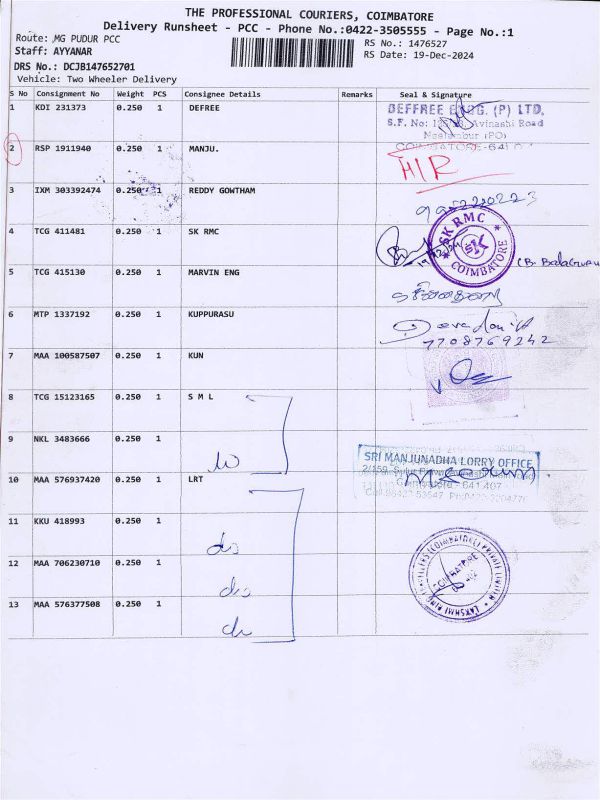 THE PROFESSIONAL COURIERS, COIMBATORE
Delivery Runsheet - PCC - Phone No.:0422-3505555 - Page No.:1
Route: MG PUDUR PCC
RS No.: 1476527
Staff: AYYANAR
RS Date: 19-Dec-2024
DRS No.: DCJB147652701
Vehicle: Two Wheeler Delivery
S No Consignment No Weight PCS Consignee Details Remarks Seal & Signature
1 KDI 231373 0.250 1 DEFREE
DEFFREE ENGG. (P) LTD.
S.F. No: Avinashi Road
Neelambur (PO)
COIMBATORE-641
2 RSP 1911940 0.250 1 MANJU.
H/R
3 IXM 303392474 0.250 1 REDDY GOWTHAM
4 TCG 411481 0.250 1 SK RMC
SK RMC
COIMBATORE
5 TCG 415130 0.250 1 MARVIN ENG
6 MTP 1337192 0.250 1 KUPPURASU
7708769242
7 MAA 100587507 0.250 1 KUN
8 TCG 15123165 0.250 1 S M L
9 NKL 3483666 0.250 1
SRI MANJUNADHA LORRY OFFICE
10 MAA 576937420 0.250 1 LRT
11 KKU 418993 0.250 1
do
12 MAA 706230710 0.250 1
do
13 MAA 576377508 0.250 1
do
COIMBATORE